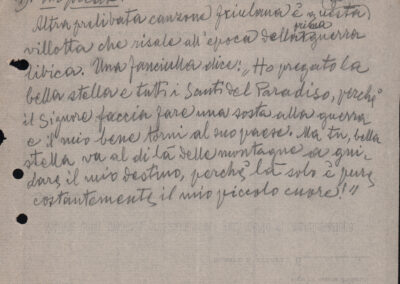 Altra prelibata canzone friulana è questa
villotta che risale all'epoca della prima guerra
libica. Una fanciulla dice: "Ho pregato la
bella stella e tutti i Santi del Paradiso, perchè
il Signore faccia fare una sosta alla guerra
e il mio bene torni al suo paese. Ma tu, bella
stella va al di là delle montagne a gui-
dare il mio destino, perchè là solo è pure
costantemente il mio piccolo cuore!"